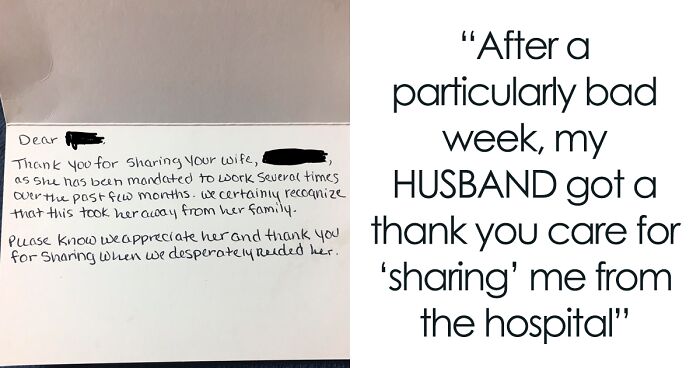 Dear
Thank you for sharing your wife,
as she has been mandated to work several times
over the past few months. we certainly recognize
that this took her away from her family.
Please know we appreciate her and thank you
for sharing when we desperately needed her.
“After a
particularly bad
week, my
HUSBAND got a
thank you care for
‘sharing’ me from
the hospital”